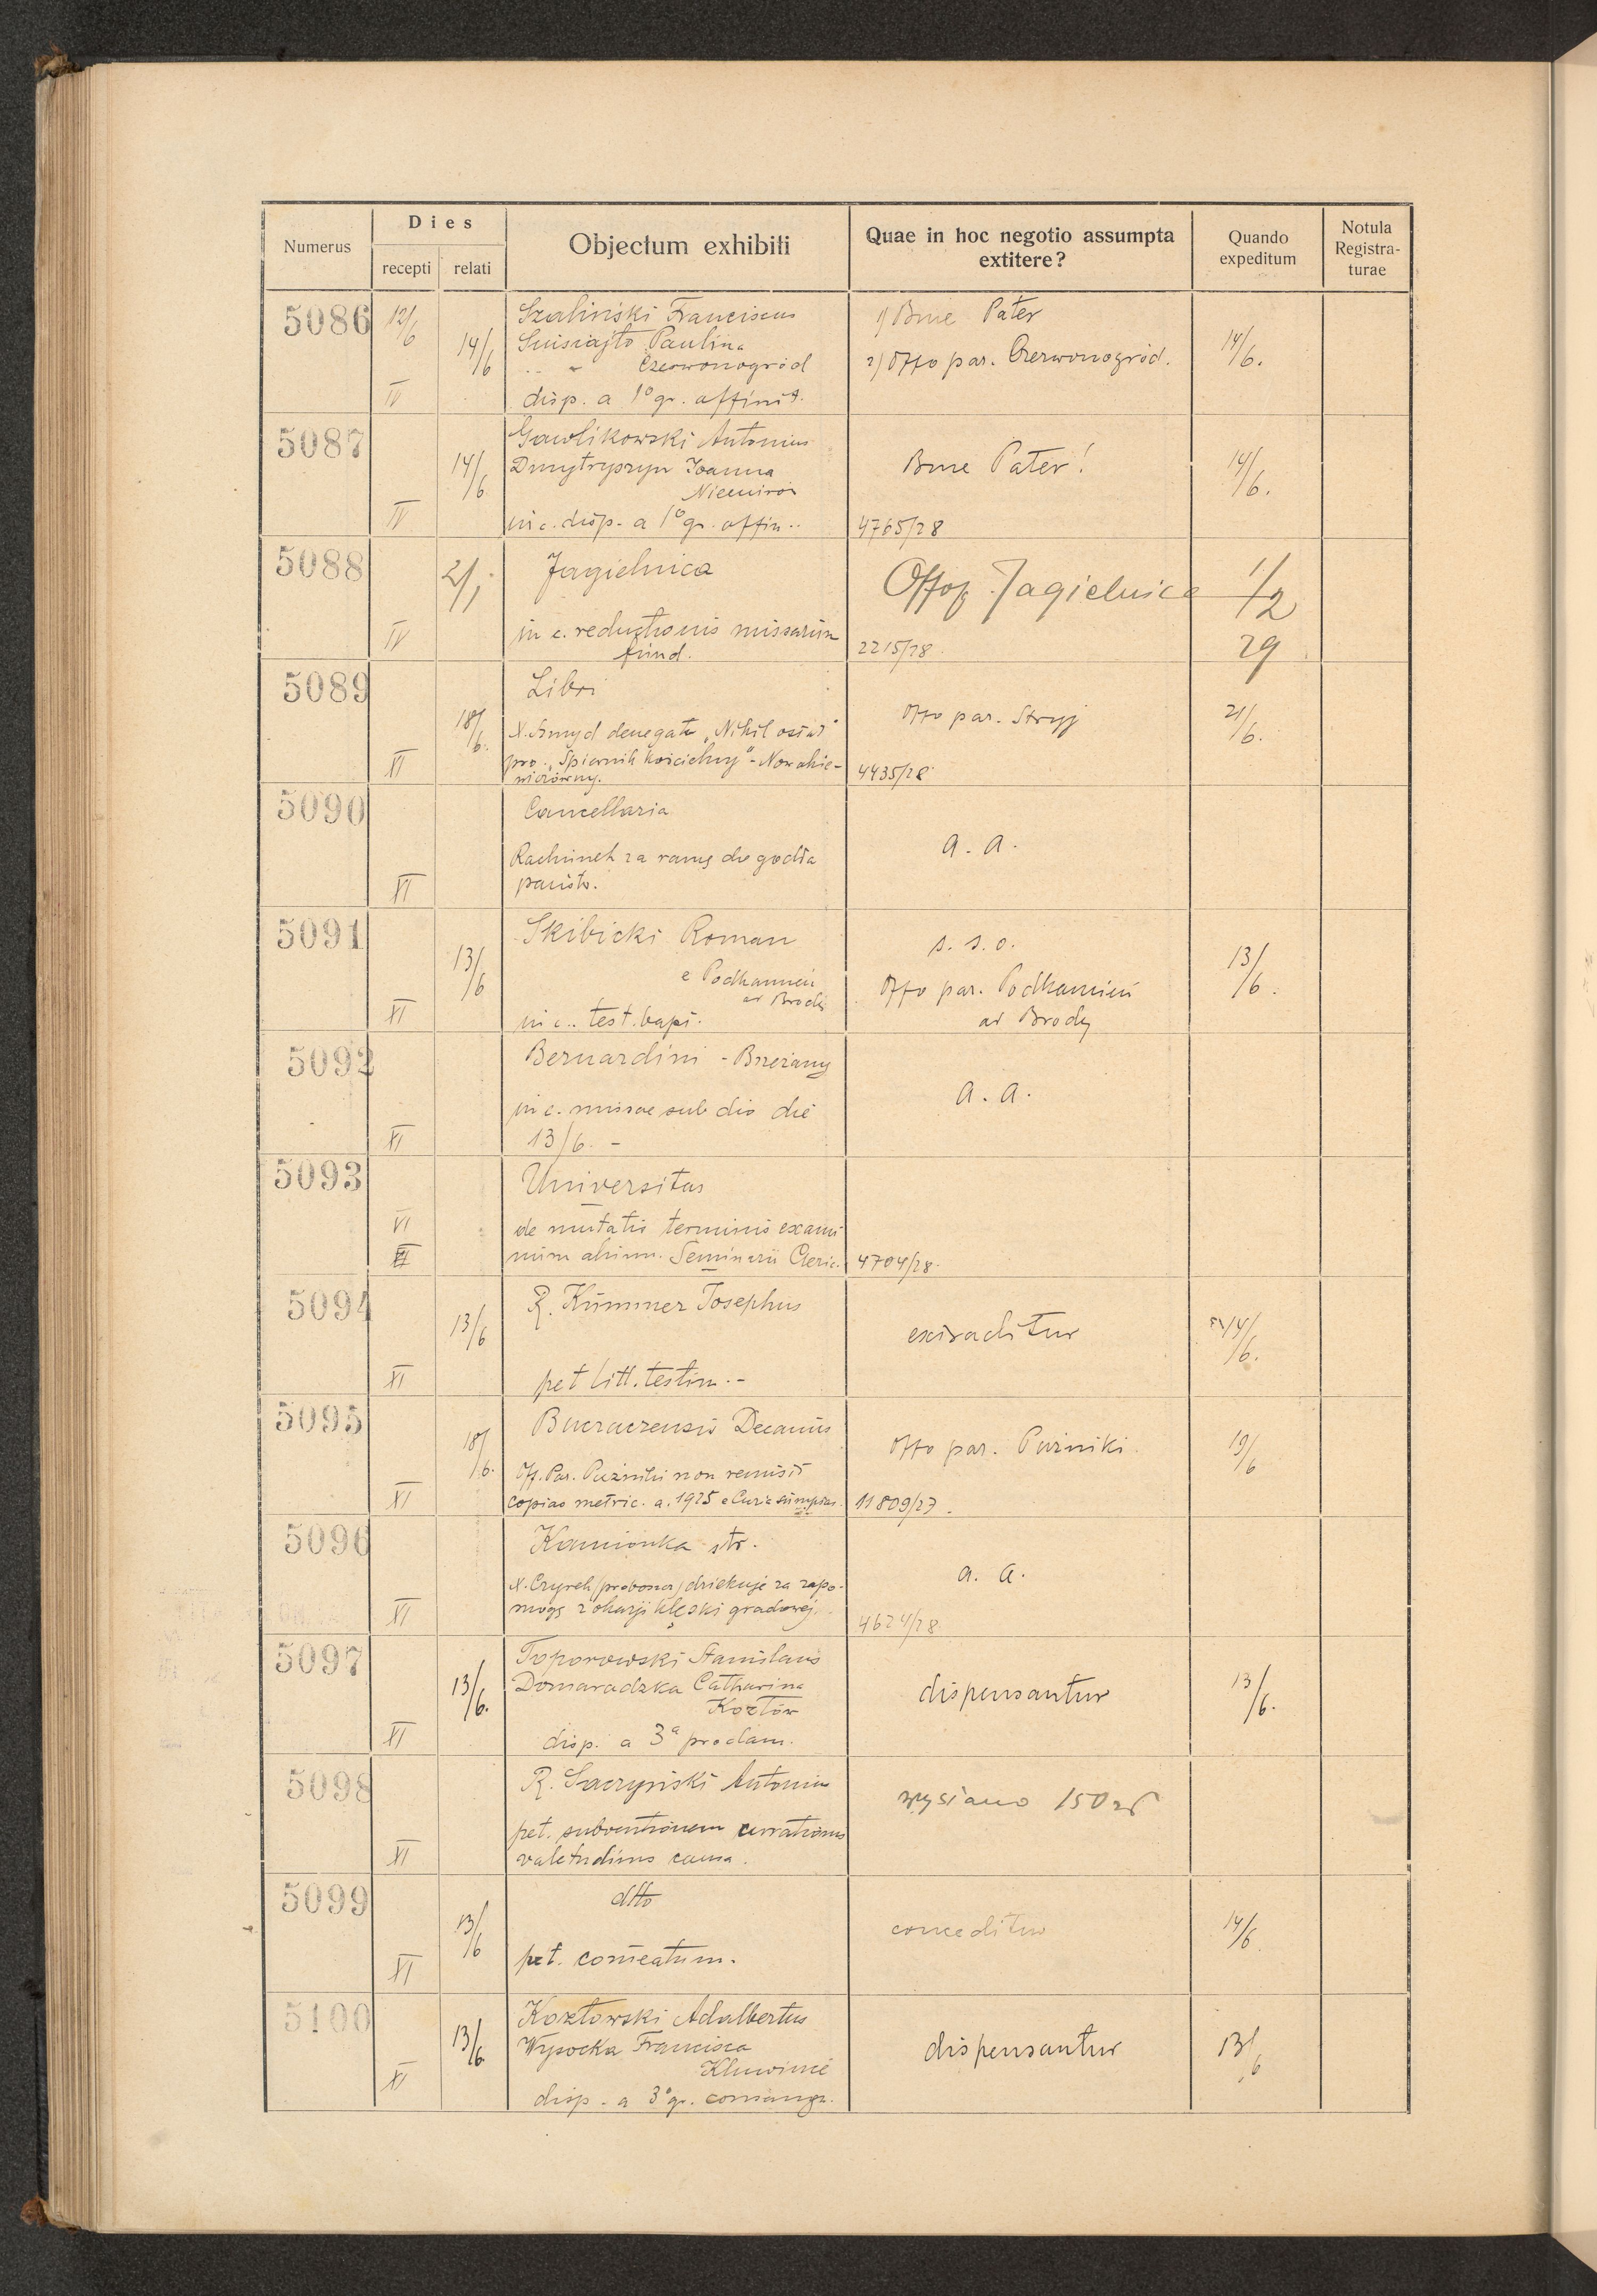 Numerus
Dies
recepti
relati
Objectum exhibiti
Quae in hoc negotio assumpta
extitere?
Quando
expeditum
Notula
Registra-
turae
5086
12/6
14/6
IV
Szaliński Franciscus
Paulina
Czerwonogród
disp. a 1° gr. affinit.
1/ Bme Pater
2/ Offo par. Czerwonogród.
14/6.
5087
14/6
IV
Gawlikowski Antonius
Dmytryszyn Joanna
Niemirów
in c. disp. a 1° gr. affin..
Bme Pater!
4765/28
14/6.
5088
2/1
IV
Jagielnica
in c. reductionis missarum
fund.
Jagielnica
2215/28
1/2
29
5089
18/6.
XI
Libri
denegato "Nihil ostat"
pro "Śpiewnik kościelny" - Nowakie-
wiczówny.
Offo par. Stryj
4435/28
21/6.
5090
XI
Cancellaria
Rachunek za ramę do godła
państw.
a. a.
5091
13/6
XI
Skibicki Roman
e Podkamień
ad Brody
in c. test. bapt.
s. s. o.
Offo par. Podkamień
ad Brody
13/6.
5092
XI
Bernardini - Brzeżany
in c. missae sub dio die
13/6. -
a. a.
5093
VI
Universitas
de mutatis terminis exami
num alumn. Seminarii Cleric.
4704/28.
5094
13/6
XI
R. Kümmer Josephus
pet litt. testim. -
extraditur
14/6.
5095
18/6.
XI
Buczaczensis Decanus
Off. Par. Puźniki non remisit
copias metric. a. 1925 e Curia sumptas.
Offo par. Puźniki.
11809/27.
19/6
5096
XI
Kamionka str.
X. Czyrek (proboszcz) dziękuje za zapo-
mogę z okazji klęski gradowej.
a. a.
4624/28
5097
13/6.
XI
Toporowski Stanislaus
Domaradzka Catharina
Kozłów
disp. a 3a proclam.
dispensantur
13/6.
5098
XI
R. Saczyński Antonius
pet. subventionem currationis
valetudinis causa.
wysłano 150 zł
5099
13/6
XI
dtto
pet. comeatum.
conceditur
14/6
5100
13/6
XI
Kozłowski Adalbertus
Wysocka Francisca
disp. a 3° gr. consangu.
dispensantur
13/6